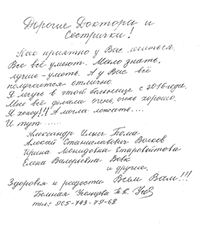 Дорогие Доктора и
Сестрички!
Как приятно у Вас лечиться.
Все всё умеют. Мало знать,
лучше - уметь. А у Вас всё
получается отлично.
Я лежу в этой больнице с 2016 года,
Мне всё делали очень очень хорошо.
Я хожу!!! А могла лежать....
И тут .....
Александр
Алексей Станиславович Волков
Ирина Леонидовна Старовойтова
Елена Валерьевна Вовк
и другие,
Здоровья и радости Всем Вам!!!
Ваша
тел: